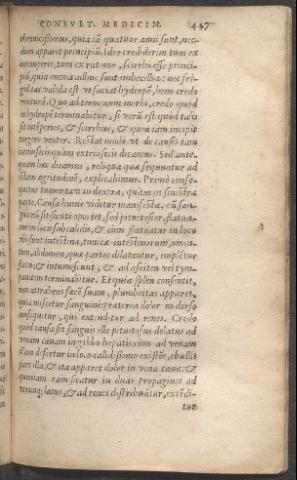 CONSVLT. MEDICIN. 447
chronicissimus, quia iā quatuor anni sunt, nec-
dum apparet principiū. Ideo crediderim tum ex
intemperie, tum ex ratione, scirrhi esse princi-
piū, quia omnia adhuc sunt imbecilla: nec fri-
giditas valida est vt faciat hydropē, bene credo
venturā. Quo ad terminum morbi, credo quòd
in hydropē terminabitur, si verū est quòd talis
sit intēperies, & scirrhus, & quia iam incipit
turgere venter. Restat modo vt de causis tam
intrinsecis quàm extrinsecis dicamus. Sed ante-
quam hæc dicamus, reliqua quæ sequuntur ad
istam ægritudinē, explicabimus. Primò conse-
quitur tumor tam in dextra, quàm in sinistra
parte. Causa huius videtur manifesta, cū san-
guis nō sit sicuti oportet, sed pituitosior, flatus
in locis subcalidis, & cùm fiat in loco
vbi sunt intestina, tunicæ intestinorum, omen-
tum, abdomen, quæ partes dilatantur, implētur
flatu, & intumescunt, & ad asciten vel tym-
paniten terminabitur. Et quia splen consentit,
non attrahens fæcē suam, plumbeitas apparet,
quia nascitur sanguini: præterea dolor in dorso
consequitur, qui extenditur ad renes. Credo
quòd causa sit sanguis ille pituitosus delatus ad
venam cauam in gibbo hepatis: cùm ad venam
illam defertur in loco calidissimo existēs, ebullit
pars illa, & ita apparet dolor in vena caua: &
quoniam ramificatur in duas propagines ad
vtrumq; latus, & ad renes distribuitur, extēdi-
tur